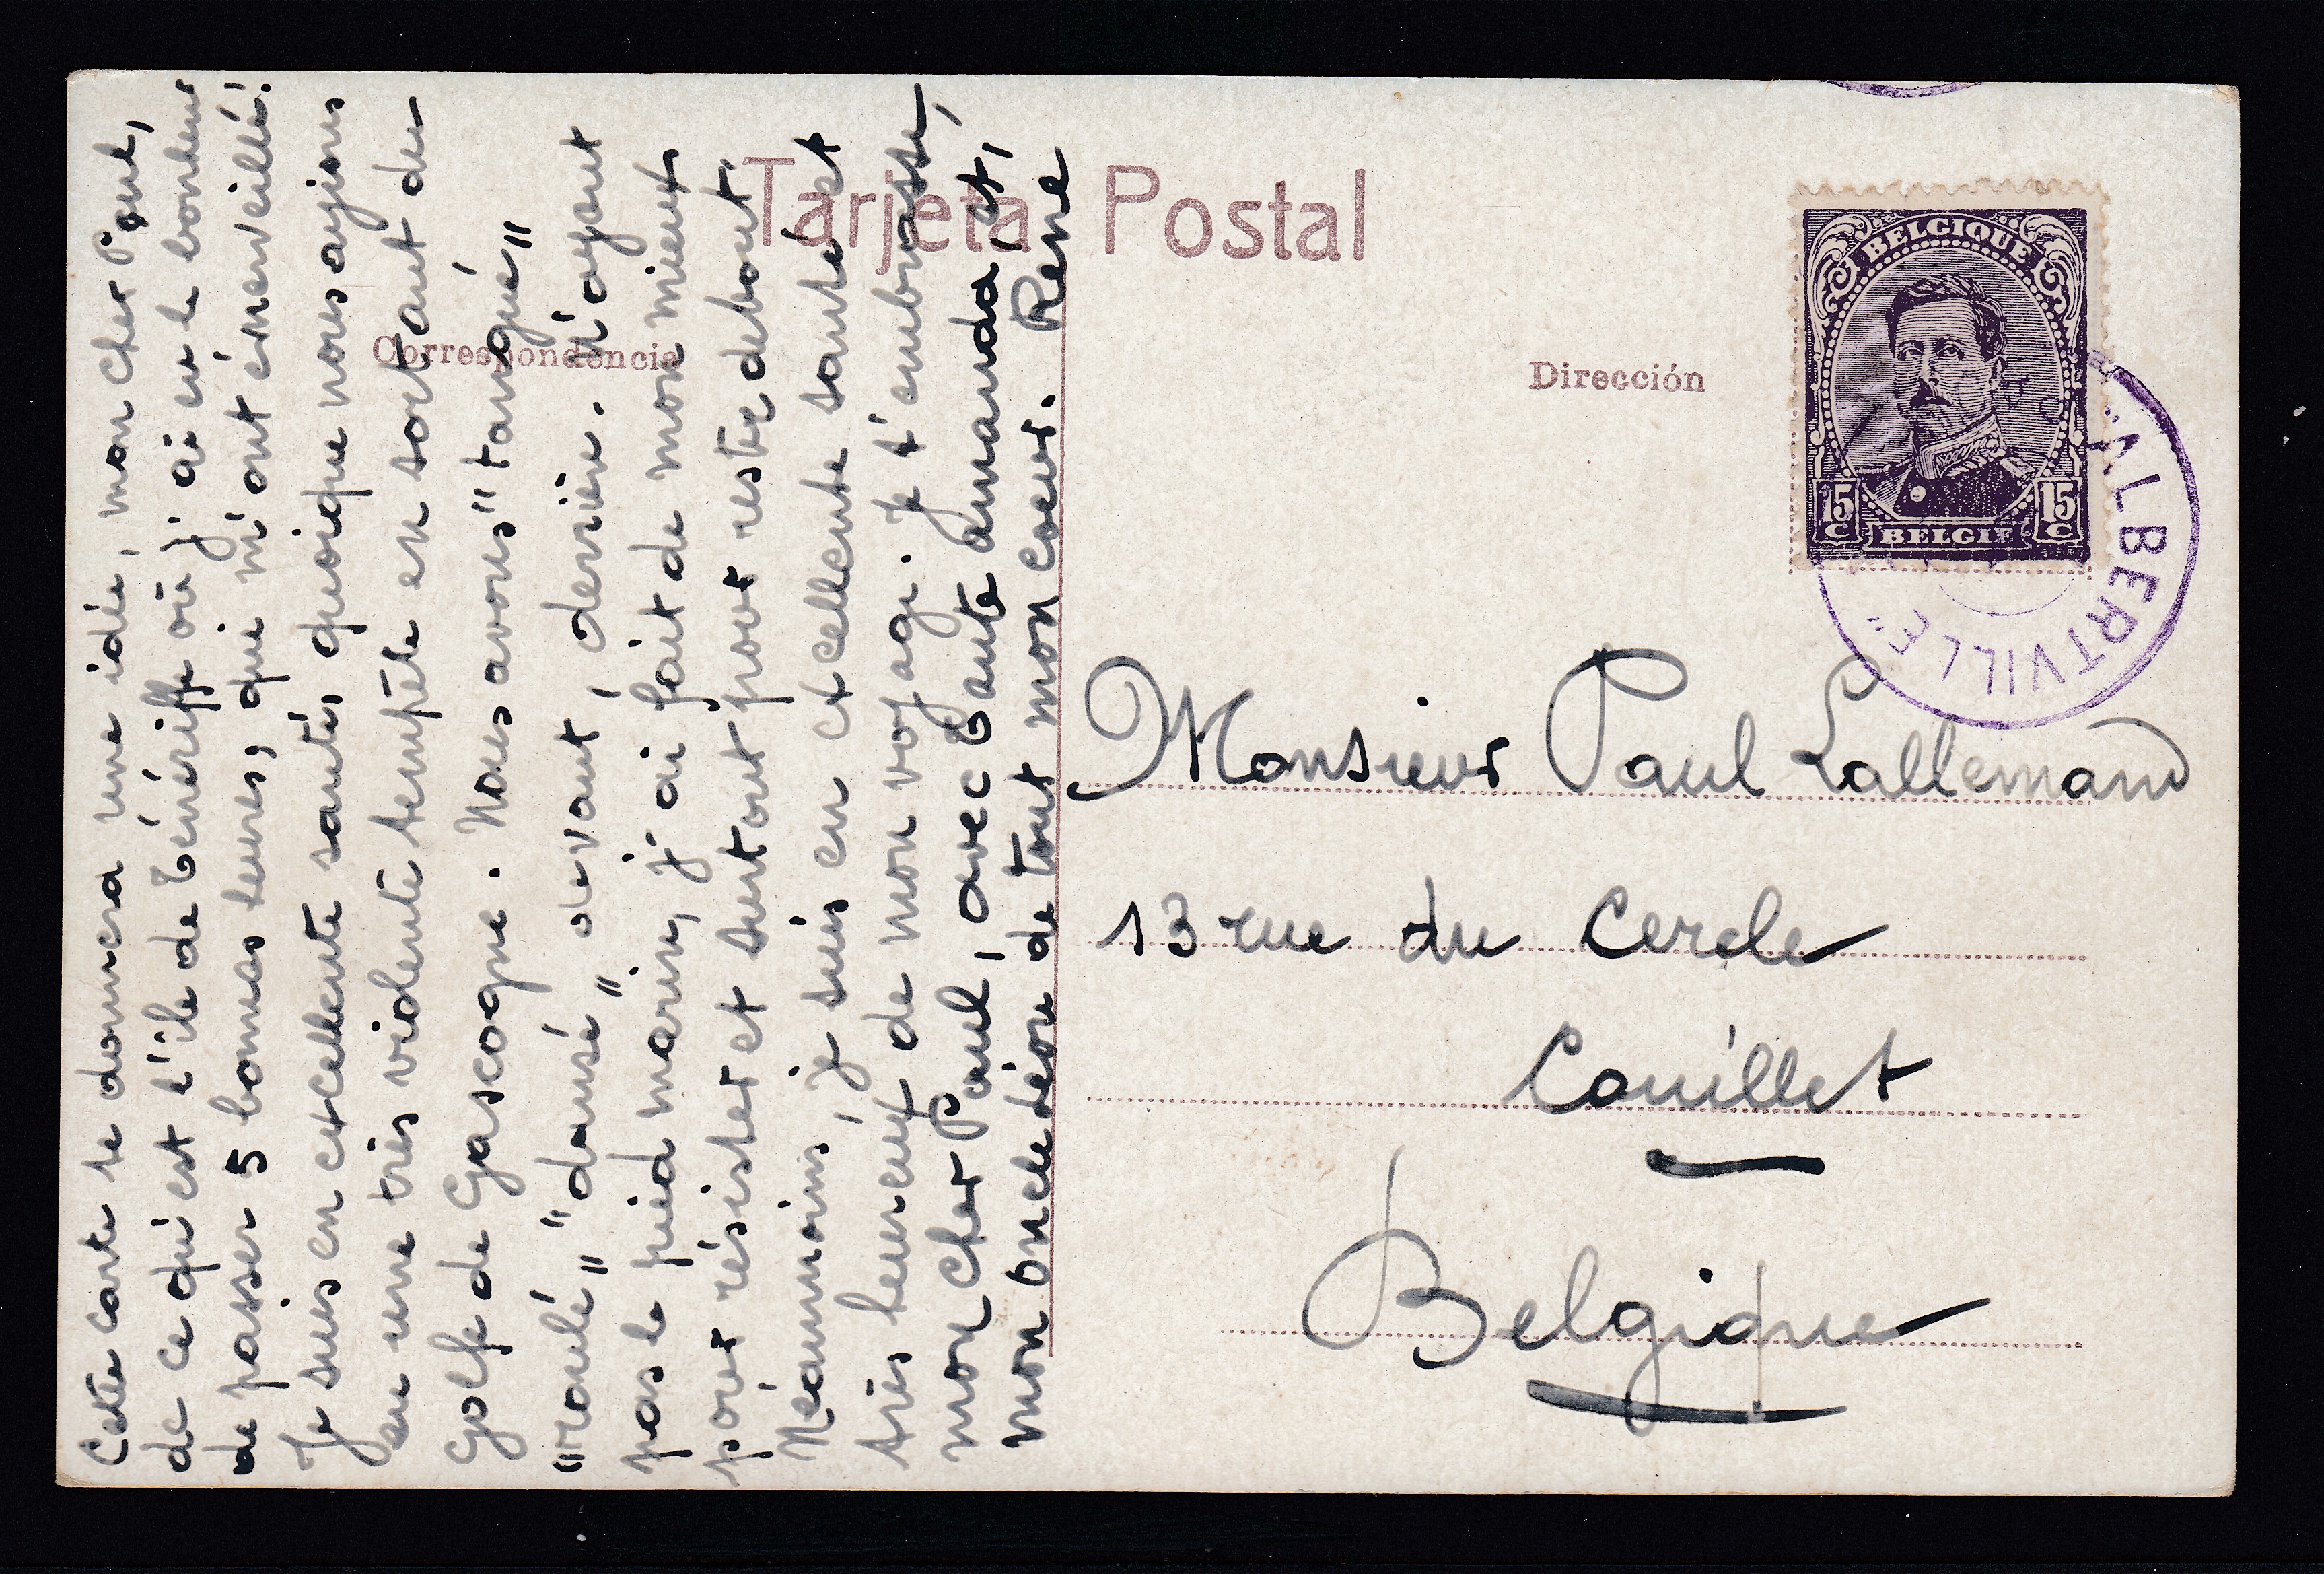 Cette carte te donnera une idée, mon cher Paul,
de ce qu'est l'île de Ténériffe où j'ai eu le bonheur
de passer 5 bonnes heures, qui m'ont émerveillé.
Je suis en excellente santé, quoique nous ayions
eu une très violente tempête en sortant du
Golfe de Gascogne. Nous avons "tangué"
"roulé" "dansé" devant, derrière. N'ayant
pas le pied marin, j'ai fait de mon mieux
pour résister et surtout pour rester debout.
Néanmoins, je suis en excellente santé et
très heureux de mon voyage. Je t'embrasse,
mon cher Paul, avec Tante Amanda et,
mon oncle Léon de tout mon coeur. René
Tarjeta Postal
Correspondencia
Dirección
BELGIQUE
15 C
BELGIE
15 C
"ALBERTVILLE"
Monsieur Paul Lallemand
13 rue du Cercle
Couillet
Belgique